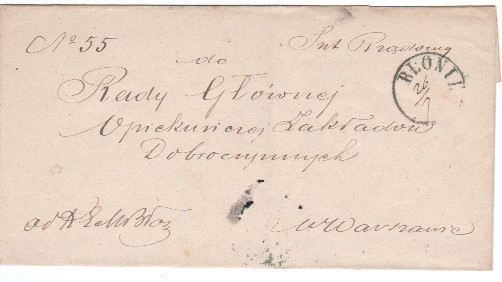 No 55
Int Rządowy
do
Rady Głównej
Opiekuńczej Zakładów
Dobroczynnych
BŁONIE
26/7
w Warszawie